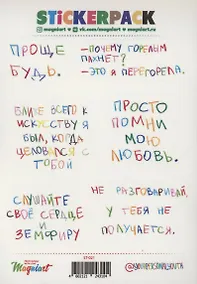 STICKERPACK
ПРОЩЕ
БУДЬ.
-ПОЧЕМУ ГОРЕЛЫМ
ПАХНЕТ?
-ЭТО Я ПЕРЕГОРЕЛА.
БЛИЖЕ ВСЕГО К
ИСКУССТВУ Я
БЫЛ, КОГДА
ЦЕЛОВАЛСЯ С
ТОБОЙ
ПРОСТО
ПОМНИ
МОЮ
ЛЮБОВЬ.
СЛУШАЙТЕ
СВОЁ СЕРДЦЕ
И
ЗЕМФИРУ
НЕ РАЗГОВАРИВАЙ,
У ТЕБЯ НЕ
ПОЛУЧАЕТСЯ.
Magniart